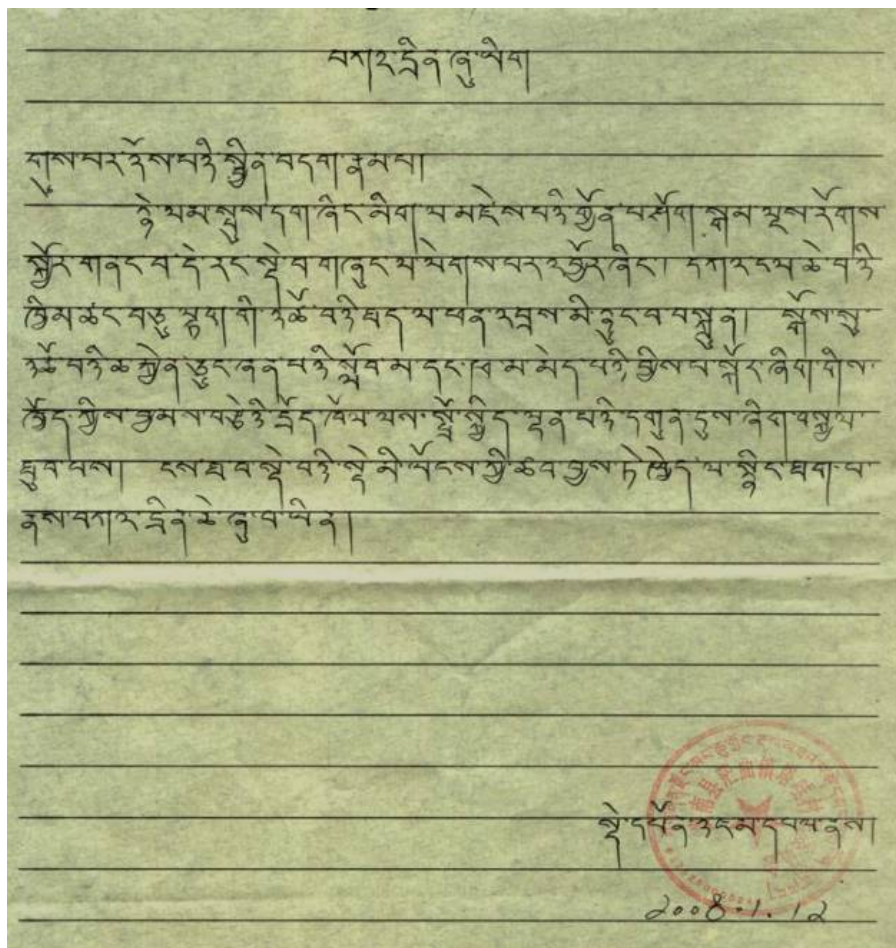 བཀར་དྲིན་ཞུ་ཡིག
གུས་པར་འོས་པའི་སྦྱིན་བདག་རྣམ་པ།
ཉེ་ལམ་སྤུས་དག་ཞིང་མིག་ལ་མཛེས་པའི་གྱོན་པ་སྒམ་ལྔས་རོགས་
སྐྱོར་གནང་བ་དེ་རང་སྡེ་བ་གཞུང་ལ་ལེགས་པར་འབྱོར་ཞིང་། དཀར་ངལ་ཆེ་བའི་
ཁྱིམ་ཚང་བཅུ་ལྷག་གི་འཚོ་བའི་ཐད་ལ་ཕན་འབྲས་མི་ཉུང་བ་བསྐྲུན། སྒོས་སུ་
འཚོ་བའི་ཆ་རྐྱེན་ཅུང་ཞན་པའི་སློབ་མ་དང་ཕ་མ་མེད་པའི་བྱིས་པ་སྐོར་ཞིག་གིས་
ཁྱོད་ཀྱིས་བྱམས་བརྩེའི་དྲོད་ཁོལ་ལས་སྤྲོ་སྐྱིད་ལྡན་པའི་དགུན་དུས་ཞིག་བསྐྱལ་
ཐུབ་པས། ངས་ཐ་བ་སྡེ་བའི་སྡེ་མི་ཡོངས་ཀྱི་ཚབ་བྱས་ཏེ་ཁྱེད་ལ་སྙིང་ཐག་པ་
ནས་བཀར་དྲིན་ཆེ་ཞུ་བ་ཡིན།
སྡེ་དཔོན་འཇམ་དཔལ་ནས།
2008.1.12